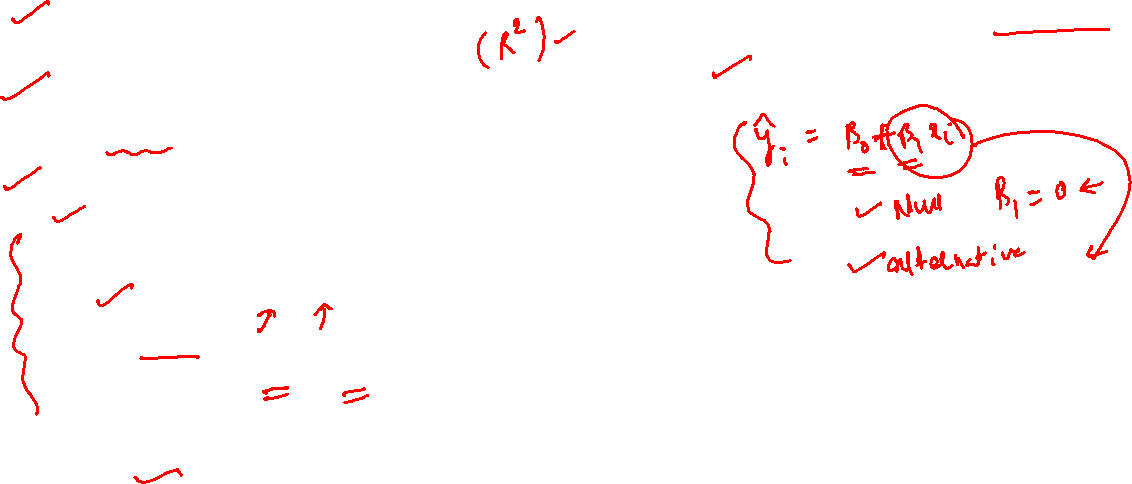 (R²)
ŷᵢ = B₀ + B₁ xᵢ
Null B₁ = 0
alternative